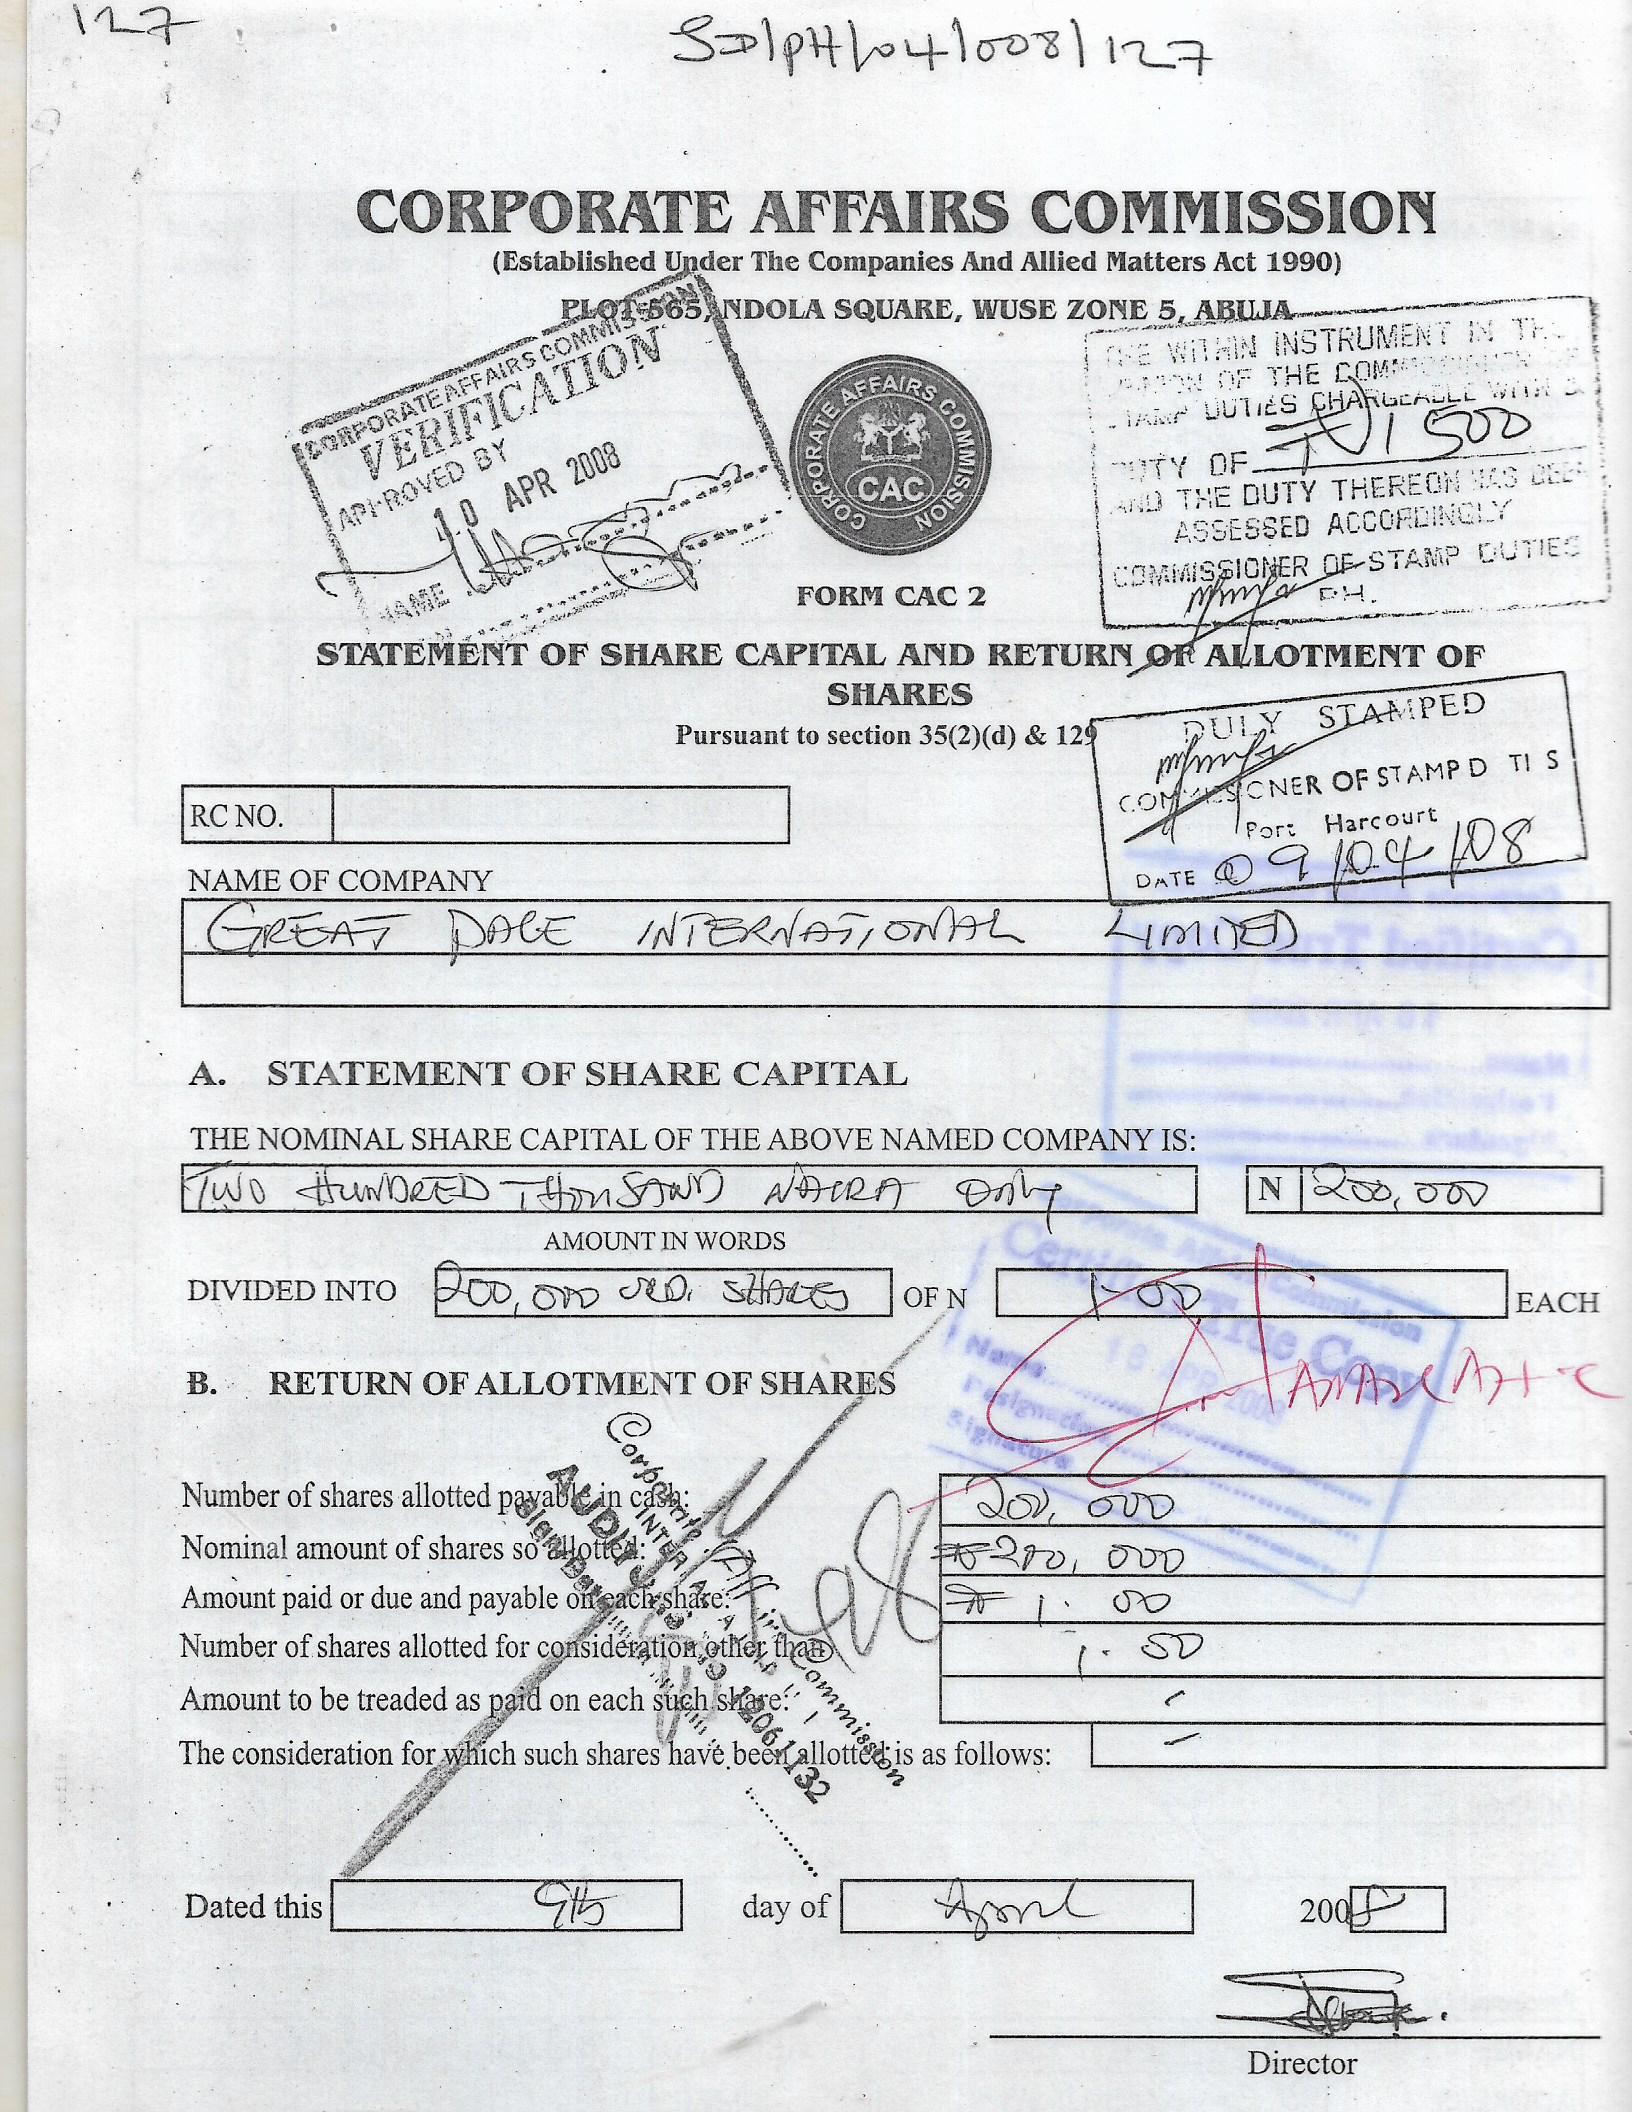 127
SD/PH/04/008/127
CORPORATE AFFAIRS COMMISSION
(Established Under The Companies And Allied Matters Act 1990)
PLOT 565, NDOLA SQUARE, WUSE ZONE 5, ABUJA
CORPORATE AFFAIRS COMMISSION
VERIFICATION
APPROVED BY
10 APR 2008
NAME
CORPORATE AFFAIRS COMMISSION
CAC
THE WITHIN INSTRUMENT IN THE
OF THE COMMISSIONER
STAMP DUTIES CHARGEABLE WITH
DUTY OF ₦1500
AND THE DUTY THEREON HAS BEEN
ASSESSED ACCORDINGLY
COMMISSIONER OF STAMP DUTIES
P.H.
FORM CAC 2
STATEMENT OF SHARE CAPITAL AND RETURN OF ALLOTMENT OF
SHARES
Pursuant to section 35(2)(d) & 129
DULY STAMPED
COMMISSIONER OF STAMP D TI S
Port Harcourt
DATE 09/04/08
RC NO.
NAME OF COMPANY
GREAT DALE INTERNATIONAL LIMITED
A. STATEMENT OF SHARE CAPITAL
THE NOMINAL SHARE CAPITAL OF THE ABOVE NAMED COMPANY IS:
TWO HUNDRED THOUSAND NAIRA ONLY N 200,000
AMOUNT IN WORDS
DIVIDED INTO 200,000 ORD. SHARES OF N 1-00 EACH
Corporate Affairs Commission
Certified True Copy
Name
Designation
Signature
B. RETURN OF ALLOTMENT OF SHARES
Number of shares allotted payable in cash: 200,000
Nominal amount of shares so allotted: ₦200,000
Amount paid or due and payable on each share: ₦1.00
Number of shares allotted for consideration other than 1.50
Amount to be treaded as paid on each such share: -
The consideration for which such shares have been allotted is as follows: -
Corporate Affairs Commission
Dated this 9th day of April 2008
Director